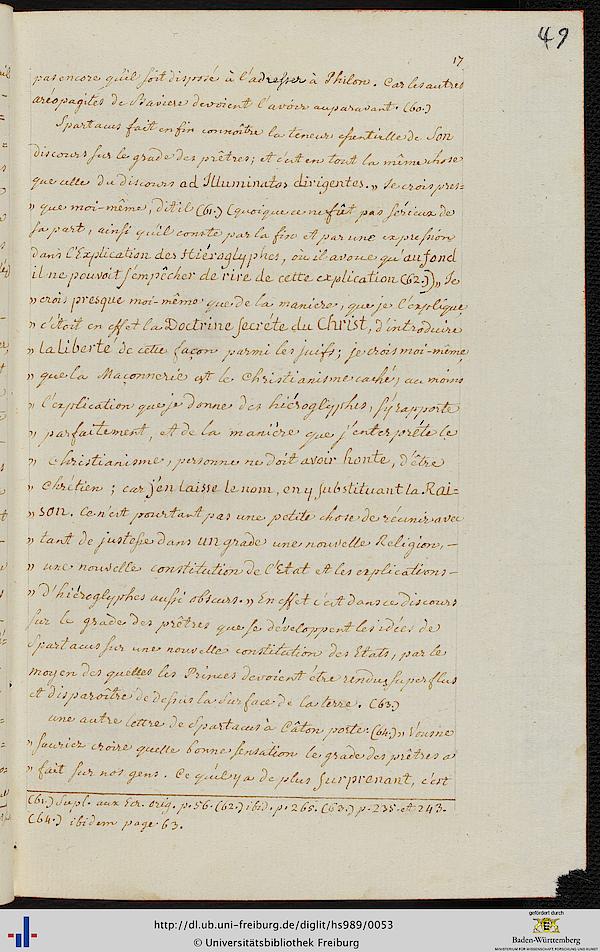 49
17
pas encore qu'il soit disposé à l'adresser à Philon. Car les autres
aréopagites de Baviere devoient l'avoir auparavant. (60.)
Spartacus fait enfin connoître la teneur essentielle de Son
discours sur le grade des prêtres; et c'est en tout la même chose
que celle du discours ad Illuminatos dirigentes. „ Je crois pres=
„ que moi-même, dit il (61.) (quoique ce ne fût pas sérieux de
sa part, ainsi qu'il conste par la fin et par une expression
dans l'Explication des Hiéroglyphes, où il avoue qu'au fond
il ne pouvoit s'empêcher de rire de cette explication (62.)) „ Je
„ crois presque moi-même que de la maniere, que je l'explique
„ c'étoit en effet la Doctrine secréte du Christ, d'introduire
„ la liberté de cette façon parmi les juifs; je crois moi-même
„ que la Maçonnerie est le christianisme caché; au moins
„ l'explication que je donne des hiéroglyphes, s'y rapporte
„ parfaitement, et de la maniére que j'enterpréte le
„ christianisme, personne ne doit avoir honte, d'être
„ chrêtien; car j'en laisse le nom, en y substituant la Rai=
„ son. Ce n'est pourtant pas une petite chose de réunir avec
„ tant de justesse dans un grade une nouvelle Religion, -
„ une nouvelle constitution de l'Etat et les explications -
„ d'hiéroglyphes aussi obscurs. „ En effet c'est dans ce discours
sur le grade des prêtres que se développent les idées de
Spartacus sur une nouvelle constitution des Etats, par le
moyen des quelles les Princes devoient être rendus superflus
et disparoître de dessus la surface de la terre. (63.)
une autre lettre de Spartacus à Câton porte: (64.) „ Vous ne
„ sauriez croire quelle bonne sensation le grade des prêtres a
„ fait sur nos gens. Ce qu'il y a de plus surprenant, c'est
(61.) Supl. aux Ecr. orig. p. 56. (62.) ibid. p. 265. (63.) p. 235. et 243.
(64.) ibidem page 63.
http://dl.ub.uni-freiburg.de/diglit/hs989/0053
© Universitätsbibliothek Freiburg
gefördert durch
Baden-Württemberg
MINISTERIUM FÜR WISSENSCHAFT, FORSCHUNG UND KUNST